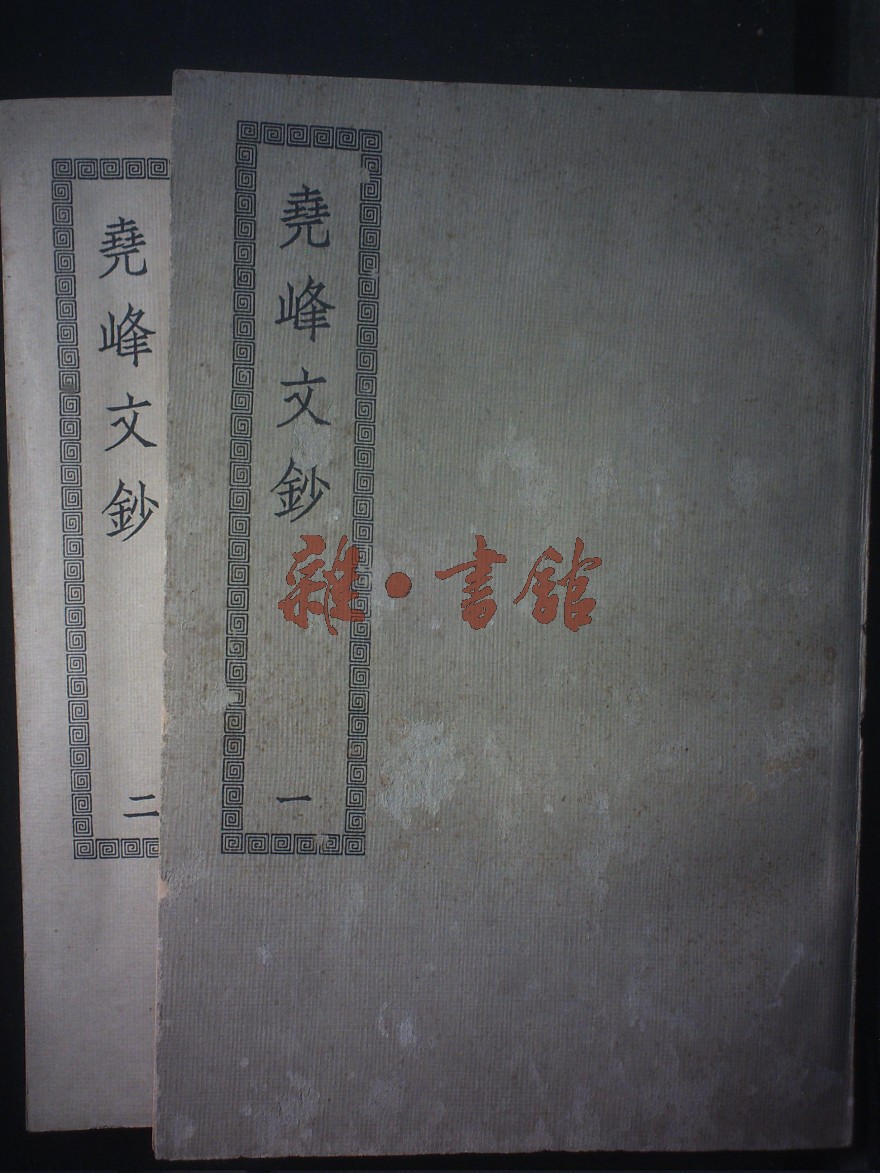 堯峰文鈔
一
堯峰文鈔
二
雜·書館